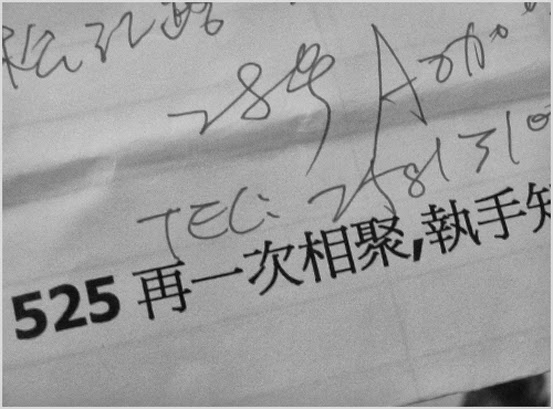 松江路
28号A
TEL: 2581310
525 再一次相聚,執手